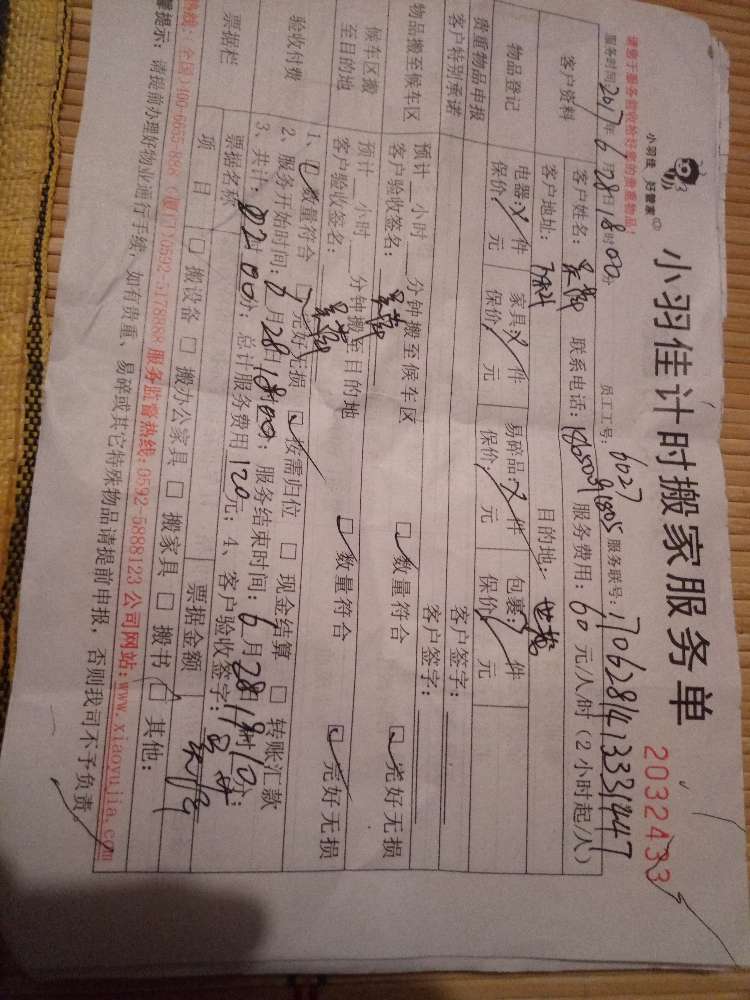 小羽佳 好管家
小羽佳计时搬家服务单
2032433
请您于服务前收拾好家的贵重物品!
服务时间2017年6月28日18时00分 员工工号:6027 服务联号:
客户资料 客户姓名: 联系电话: 服务费用:60元/人/时(2小时起/人)
客户地址: 目的地:
物品登记 电器: 件 家具: 件 易碎品: 件 包裹: 件
保价: 元 保价: 元 保价: 元 保价: 元
贵重物品申报 客户签字:
客户特别承诺 客户签字:
物品搬至候车区 预计 小时 分钟搬至候车区
客户验收签名: 数量符合 完好无损
候车区搬至目的地 预计 小时 分钟搬至目的地
客户验收签名: 数量符合 完好无损
验收付费 1、 数量符合 完好无损 按需归位 现金结算 转账汇款
2、服务开始时间:6月28日18时00分;服务结束时间:6月28日19时10分;
3、共计:02时00分;总计服务费用120元;4、客户验收签字:
票据栏 票据名称 票据金额
项目 搬设备 搬办公家具 搬家具 搬书 其他:
热线:全国)400-6655-898(厦门)0592-5178888 服务监督热线:0592-5888123 公司网站:www.xiaoyujia.com
馨提示:请提前办理好物业通行手续,如有贵重、易碎或其它特殊物品请提前申报,否则我司不予负责。